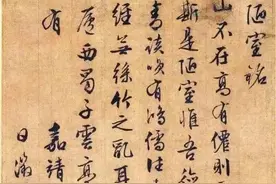 陋室銘
山不在高有僊則
斯是陋室惟吾德
青談笑有鴻儒往
經無絲竹之亂耳
廬西蜀子雲亭
有
嘉靖
日